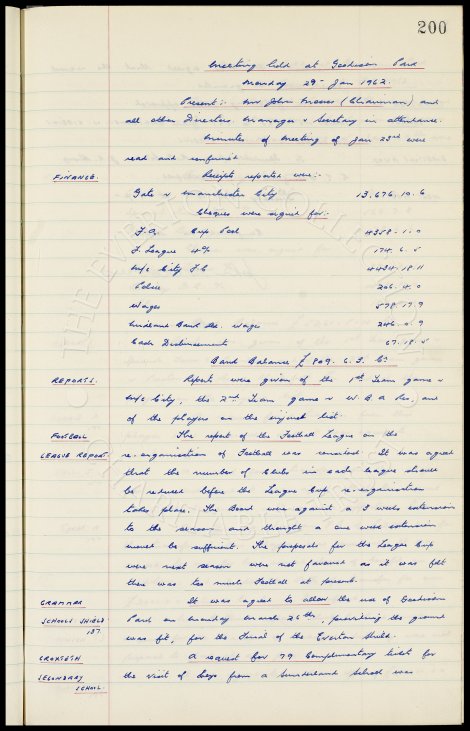 200
Meeting held at Goodison Park
Monday 29th Jan 1962.
Present:- Mr John Moores (Chairman) and
all other Directors. Manager & Secretary in attendance.
Minutes of Meeting of Jan 23rd were
read and confirmed
FINANCE. Receipts reported were:-
Gate v Manchester City 13,676.10.6
Cheques were signed for:-
F.A. Cup Pool 4358.1.0
F. League 4% 174.6.5
M/c City F.C 4434.18.11
Police 206.4.0
Wages 578.17.9
Midland Bank Ltd. Wages 246.0.9
Cash Disbursement 67.18.5
Bank Balance £809.6.3. Cr
REPORTS. Report were given of the 1st Team game v
M/c City, the 2nd Team game v W.B.A Res, and
of the players on the injured list.
FOOTBALL The report of the Football League on the
LEAGUE REPORT. re-organisation of Football was considered. It was agreed
that the number of Clubs in each league should
be reduced before the League Cup re-organisation
takes place. The Board were against a 3 weeks extension
to the season and thought a one week extension
would be sufficient. The proposals for the League Cup
were next season were not favoured as it was felt
there was too much Football at present.
GRAMMAR It was agreed to allow the use of Goodison
SCHOOLS SHIELD Park on Monday March 26th, providing the ground
was fit, for the Final of the Everton Shield.
CROXTETH A request for 79 Complimentary ticket for
SECONDARY the visit of boys from a Sunderland School was
SCHOOL.
THE EVERTON COLLECTION